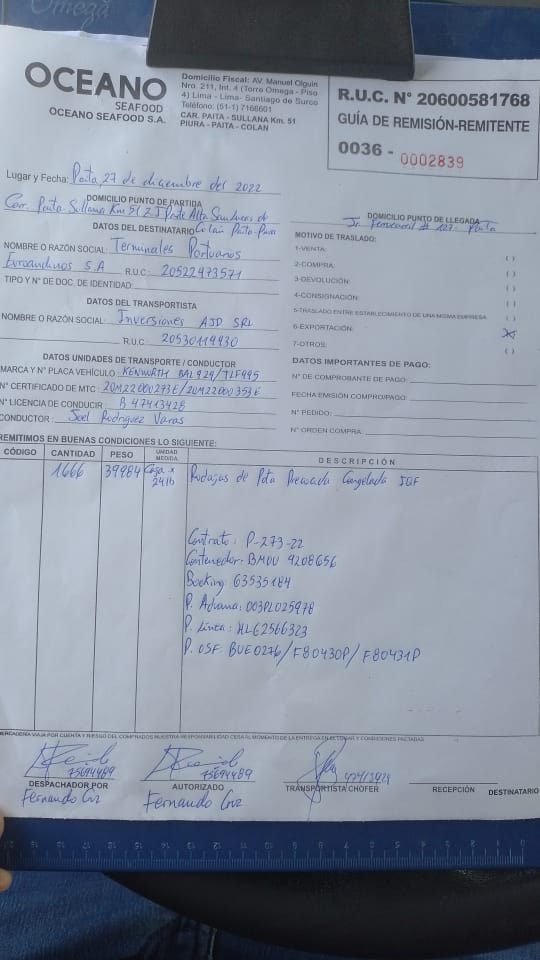 OCEANO
SEAFOOD
OCEANO SEAFOOD S.A.
Domicilio Fiscal: AV. Manuel Olguin
Nro. 211, Int. 4 (Torre Omega - Piso
4) Lima - Lima- Santiago de Surco
Teléfono: (51-1) 7166601
CAR. PAITA - SULLANA Km. 51
PIURA - PAITA - COLAN
R.U.C. N° 20600581768
GUÍA DE REMISIÓN-REMITENTE
0036 - 0002839
Lugar y Fecha: Paita, 27 de diciembre del 2022
DOMICILIO PUNTO DE PARTIDA
Carr. Paita-Sullana Km 51 ZI Parte Alta San Lucas de
Colán Paita-Piura
DATOS DEL DESTINATARIO
NOMBRE O RAZÓN SOCIAL: Terminales Portuarios
Euroandinos S.A R.U.C: 20522473571
TIPO Y N° DE DOC. DE IDENTIDAD:
DATOS DEL TRANSPORTISTA
NOMBRE O RAZÓN SOCIAL: Inversiones AJD SRL
R.U.C: 20530119930
DATOS UNIDADES DE TRANSPORTE / CONDUCTOR
MARCA Y N° PLACA VEHÍCULO: KENWORTH
N° CERTIFICADO DE MTC:
N° LICENCIA DE CONDUCIR: B 47413428
CONDUCTOR: Joel Rodriguez Varas
DOMICILIO PUNTO DE LLEGADA
Jr. Ferrocarril # 127- Paita
MOTIVO DE TRASLADO:
1-VENTA: ( )
2-COMPRA: ( )
3-DEVOLUCIÓN: ( )
4-CONSIGNACIÓN: ( )
5-TRASLADO ENTRE ESTABLECIMIENTO DE UNA MISMA EMPRESA ( )
6-EXPORTACIÓN: (X)
7-OTROS: ( )
DATOS IMPORTANTES DE PAGO:
N° DE COMPROBANTE DE PAGO:
FECHA EMISIÓN COMPRO/PAGO:
N° PEDIDO:
N° ORDEN COMPRA:
REMITIMOS EN BUENAS CONDICIONES LO SIGUIENTE:
CÓDIGO CANTIDAD PESO UNIDAD MEDIDA DESCRIPCIÓN
1666 39984 Caja x 24 lb Rodajas de Pota Precocida Congelada IQF
Contrato: P-273-22
Contenedor: BMOU 9208656
Booking: 63535184
P. Aduana: 003PL025978
P. Linea: HLG2566323
P. OSF: BUE0276/F80430P/F80431P
MERCADERÍA VIAJA POR CUENTA Y RIESGO DEL COMPRADOR NUESTRA RESPONSABILIDAD CESA AL MOMENTO DE LA ENTREGA EN EL LUGAR Y CONDICIONES PACTADAS
75694489 75694489
DESPACHADOR POR AUTORIZADO TRANSPORTISTA CHOFER RECEPCIÓN DESTINATARIO
Fernando Cruz Fernando Cruz